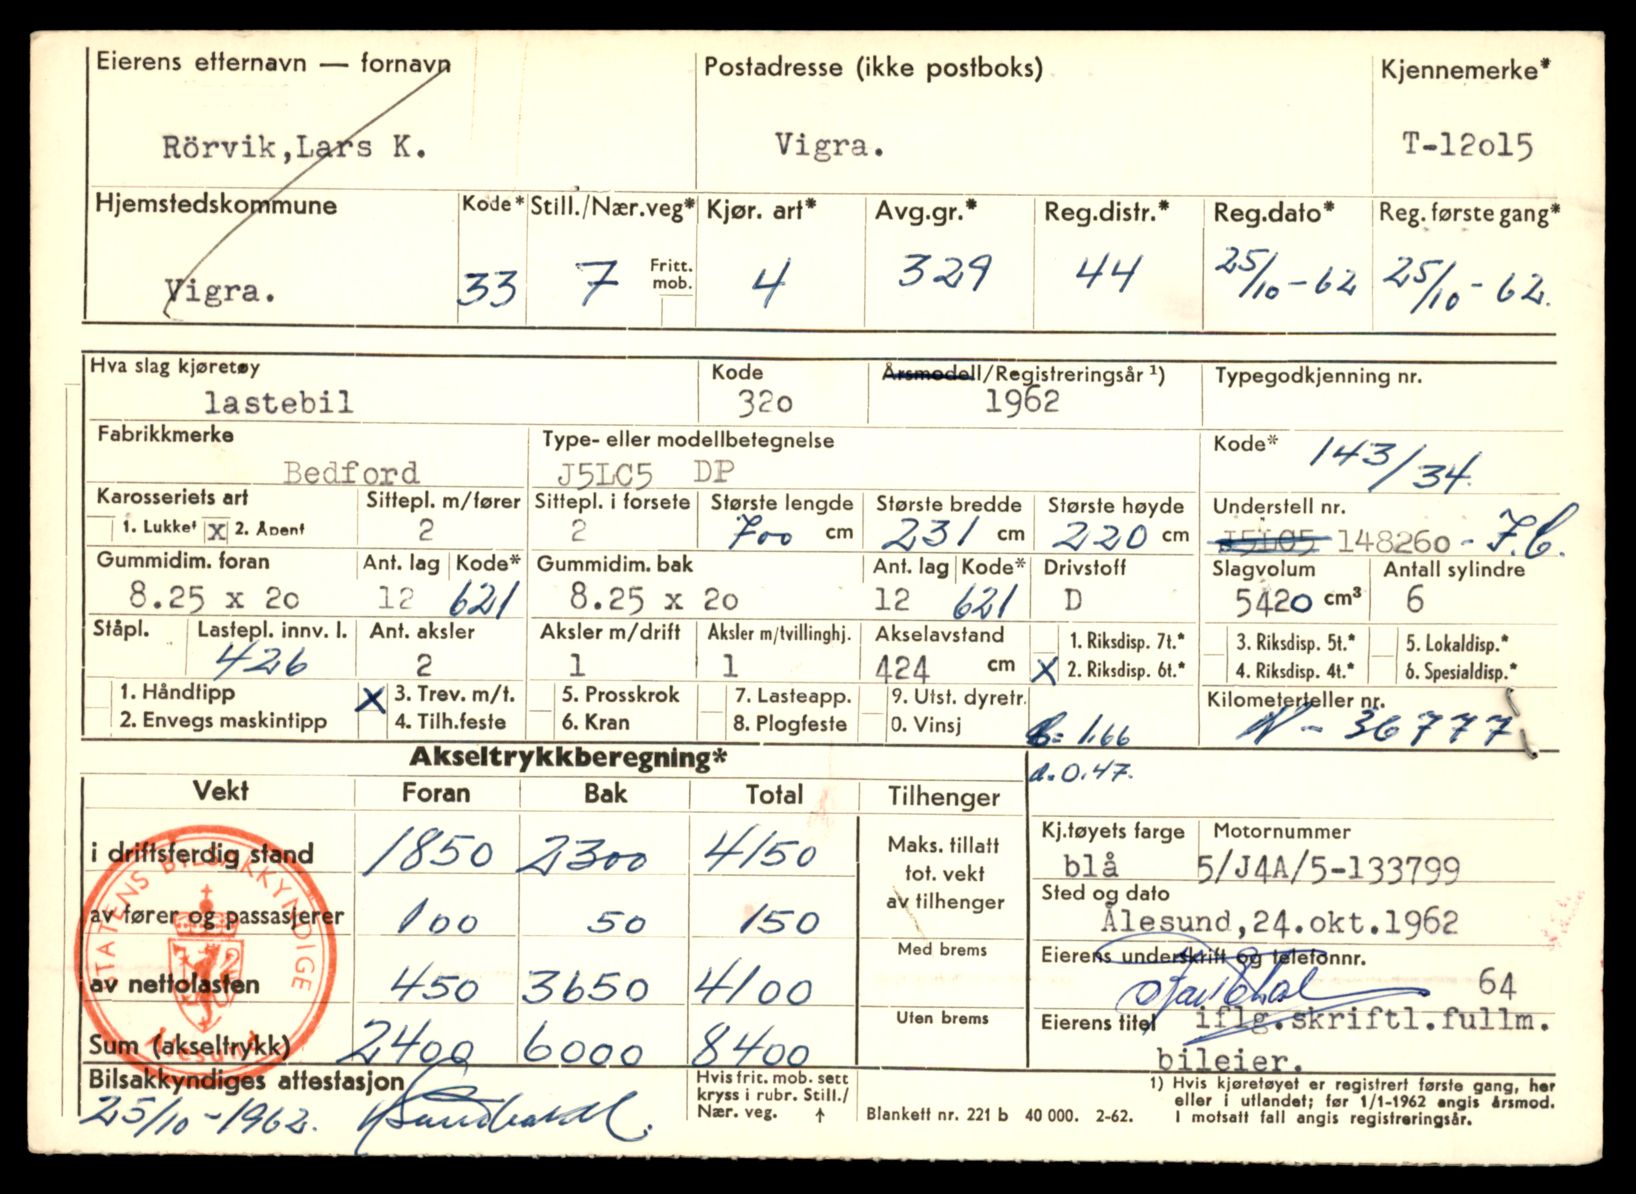 Eierens etternavn — fornavn Postadresse (ikke postboks) Kjennemerke*
Rörvik,Lars K. Vigra. T-12o15
Hjemstedskommune Kode* Still./Nær.veg* Kjør. art* Avg.gr.* Reg.distr.* Reg.dato* Reg. første gang*
Vigra. 33 7 Fritt. mob. 4 329 44 25/10-62 25/10-62.
Hva slag kjøretøy Kode Årsmodell/Registreringsår ¹) Typegodkjenning nr.
lastebil 32o 1962
Fabrikkmerke Type- eller modellbetegnelse Kode* 143/34.
Bedford J5LC5 DP
Karosseriets art Sittepl. m/fører Sittepl. i forsete Største lengde Største bredde Største høyde Understell nr.
1. Lukket x 2. Åpent 2 2 700 cm 231 cm 220 cm J5LO5 14826o - F.C.
Gummidim. foran Ant. lag Kode* Gummidim. bak Ant. lag Kode* Drivstoff Slagvolum Antall sylindre
8.25 x 2o 12 621 8.25 x 2o 12 621 D 5420 cm³ 6
Ståpl. Lastepl. innv. l. Ant. aksler Aksler m/drift Aksler m/tvillinghj. Akselavstand 1. Riksdisp. 7t.* 3. Riksdisp. 5t.* 5. Lokaldisp.*
426 2 1 1 424 cm X 2. Riksdisp. 6t.* 4. Riksdisp. 4t.* 6. Spesialdisp.*
1. Håndtipp X 3. Trev. m/t. 5. Prosskrok 7. Lasteapp. 9. Utst. dyretr. Kilometerteller nr.
2. Envegs maskintipp 4. Tilh.feste 6. Kran 8. Plogfeste 0. Vinsj b= 1.66 N - 36777
Akseltrykkberegning* d. 0.47.
Vekt Foran Bak Total Tilhenger
Kj.tøyets farge Motornummer
i driftsferdig stand 1850 2300 4150 Maks. tillatt tot. vekt av tilhenger
blå 5/J4A/5-133799
Sted og dato
av fører og passasjerer 100 50 150
Ålesund,24.okt.1962
Med brems
Eierens underskrift og telefonnr.
av nettolasten 450 3650 4100
64
Uten brems
Eierens titel iflg.skriftl.fullm.
Sum (akseltrykk) 2400 6000 8400
bileier.
STATENS BILSAKKYNDIGE
Ålesund
Bilsakkyndiges attestasjon
25/10-1962.
Hvis frit. mob. sett
kryss i rubr. Still./
Nær. veg. ↑
Blankett nr. 221 b 40 000. 2-62.
1) Hvis kjøretøyet er registrert første gang, her
eller i utlandet; før 1/1-1962 angis årsmod.
I motsatt fall angis registreringsår.